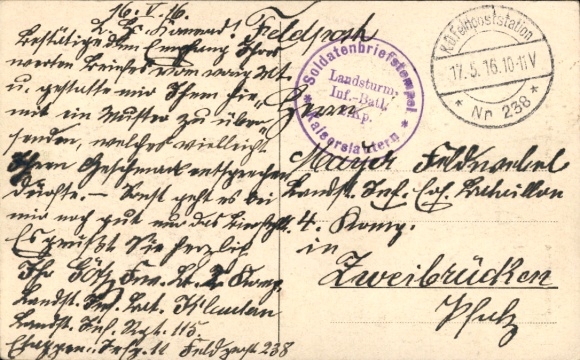 16. V. 16.
Feldpost
Bestätige den Empfang Ihres
werten Briefes vom
u. gestatte mir Ihnen hie-
mit ein Muster zu über-
senden, welches vielleicht
Ihrem Geschmack entsprechen
dürfte. — Sonst geht es bei
mir noch gut und das
Es grüsst Sie herzlich
Ihr Götz
Landst. Inf. Bat. K'lautern
Landst. Inf. Rgt. 115.
Feldpost 238
Soldatenbriefstempel
Landsturm,
Inf.-Batl.
Kp.
Kaiserslautern
K.D. Feldpoststation
17.5.16.10-11V
* Nr. 238 *
Herrn
Mayer Feldwebel
Landst. Inf. Bataillon
4. Komp.
in
Zweibrücken
Pfalz